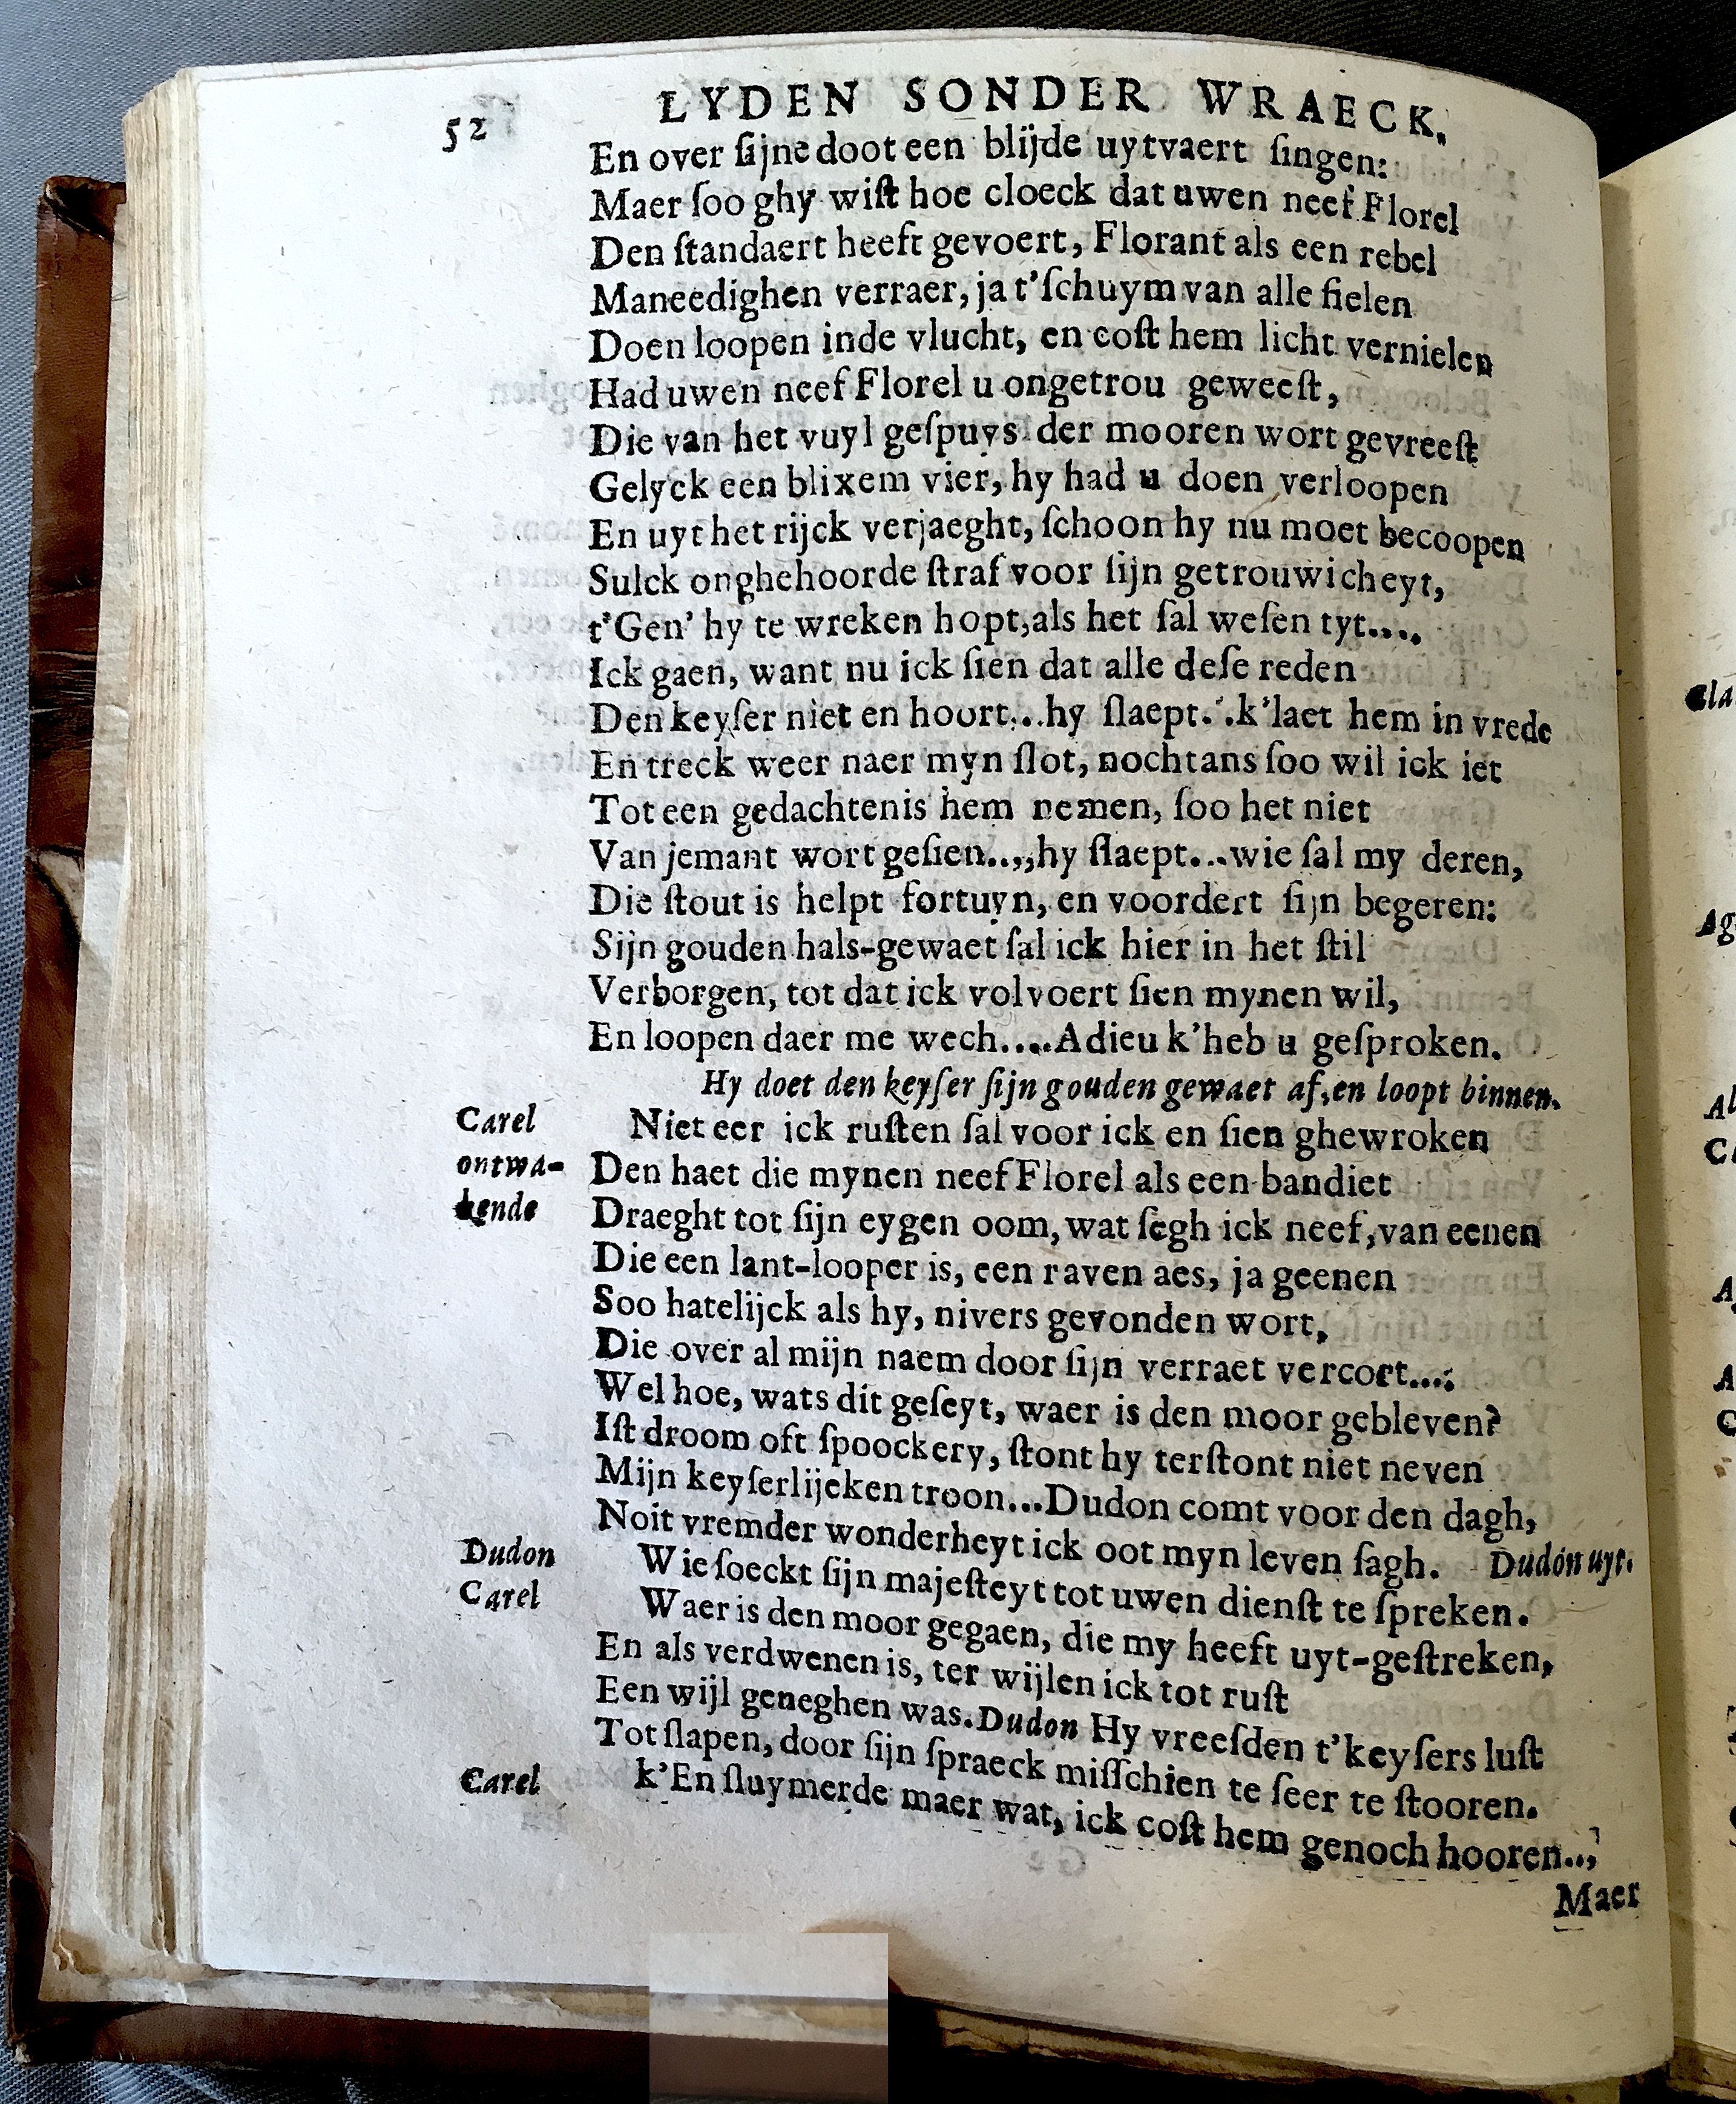 52 LYDEN SONDER WRAECK,
En over ſijne doot een blijde uytvaert ſingen:
Maer ſoo ghy wiſt hoe cloeck dat uwen neef Florel
Den ſtandaert heeft gevoert, Florant als een rebel
Maneedighen verraer, ja t'ſchuym van alle fielen
Doen loopen inde vlucht, en coſt hem licht vernielen
Had uwen neef Florel u ongetrou geweeſt,
Die van het vuyl geſpuys der mooren wort gevreeſt
Gelyck een blixem vier, hy had u doen verloopen
En uyt het rijck verjaeght, ſchoon hy nu moet becoopen
Sulck onghehoorde ſtraf voor ſijn getrouwicheyt,
t'Gen' hy te wreken hopt, als het ſal weſen tyt....
Ick gaen, want nu ick ſien dat alle deſe reden
Den keyſer niet en hoort...hy ſlaept. .k'laet hem in vrede
En treck weer naer myn ſlot, nochtans ſoo wil ick iet
Tot een gedachtenis hem nemen, ſoo het niet
Van jemant wort geſien..,,hy ſlaept...wie ſal my deren,
Die ſtout is helpt fortuyn, en voordert ſijn begeren:
Sijn gouden hals-gewaet ſal ick hier in het ſtil
Verborgen, tot dat ick volvoert ſien mynen wil,
En loopen daer me wech....Adieu k'heb u geſproken.
Hy doet den keyſer ſijn gouden gewaet af, en loopt binnen.
Carel Niet eer ick ruſten ſal voor ick en ſien ghewroken
ontwa- Den haet die mynen neef Florel als een bandiet
kende Draeght tot ſijn eygen oom, wat ſegh ick neef, van eenen
Die een lant-looper is, een raven aes, ja geenen
Soo hatelijck als hy, nivers gevonden wort,
Die over al mijn naem door ſijn verraet vercort....
Wel hoe, wats dit geſeyt, waer is den moor gebleven?
Iſt droom oft ſpoockery, ſtont hy terſtont niet neven
Mijn keyſerlijcken troon...Dudon comt voor den dagh,
Noit vremder wonderheyt ick oot myn leven ſagh. Dudon uyt.
Dudon Wie ſoeckt ſijn majeſteyt tot uwen dienſt te ſpreken.
Carel Waer is den moor gegaen, die my heeft uyt-geſtreken,
En als verdwenen is, ter wijlen ick tot ruſt
Een wijl geneghen was. Dudon Hy vreeſden t'keyſers luſt
Tot ſlapen, door ſijn ſpraeck miſſchien te ſeer te ſtooren.
Carel k'En ſluymerde maer wat, ick coſt hem genoch hooren..,
Maer